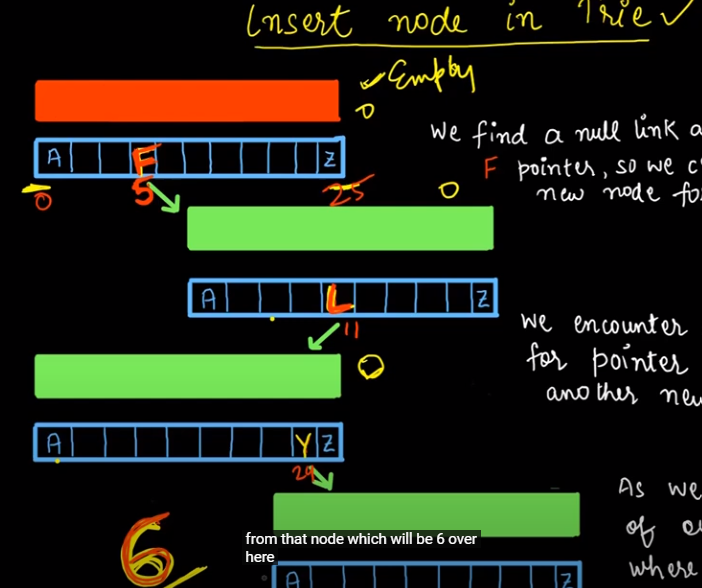 Insert node in Trie ✓
Empty
0
A F Z
0 5 25
We find a null link a
F pointer, so we c
new node fo
0
A L Z
11
We encounter
for pointer
another new
0
A Y Z
24
As we
of
where
6
from that node which will be 6 over
here
A Z